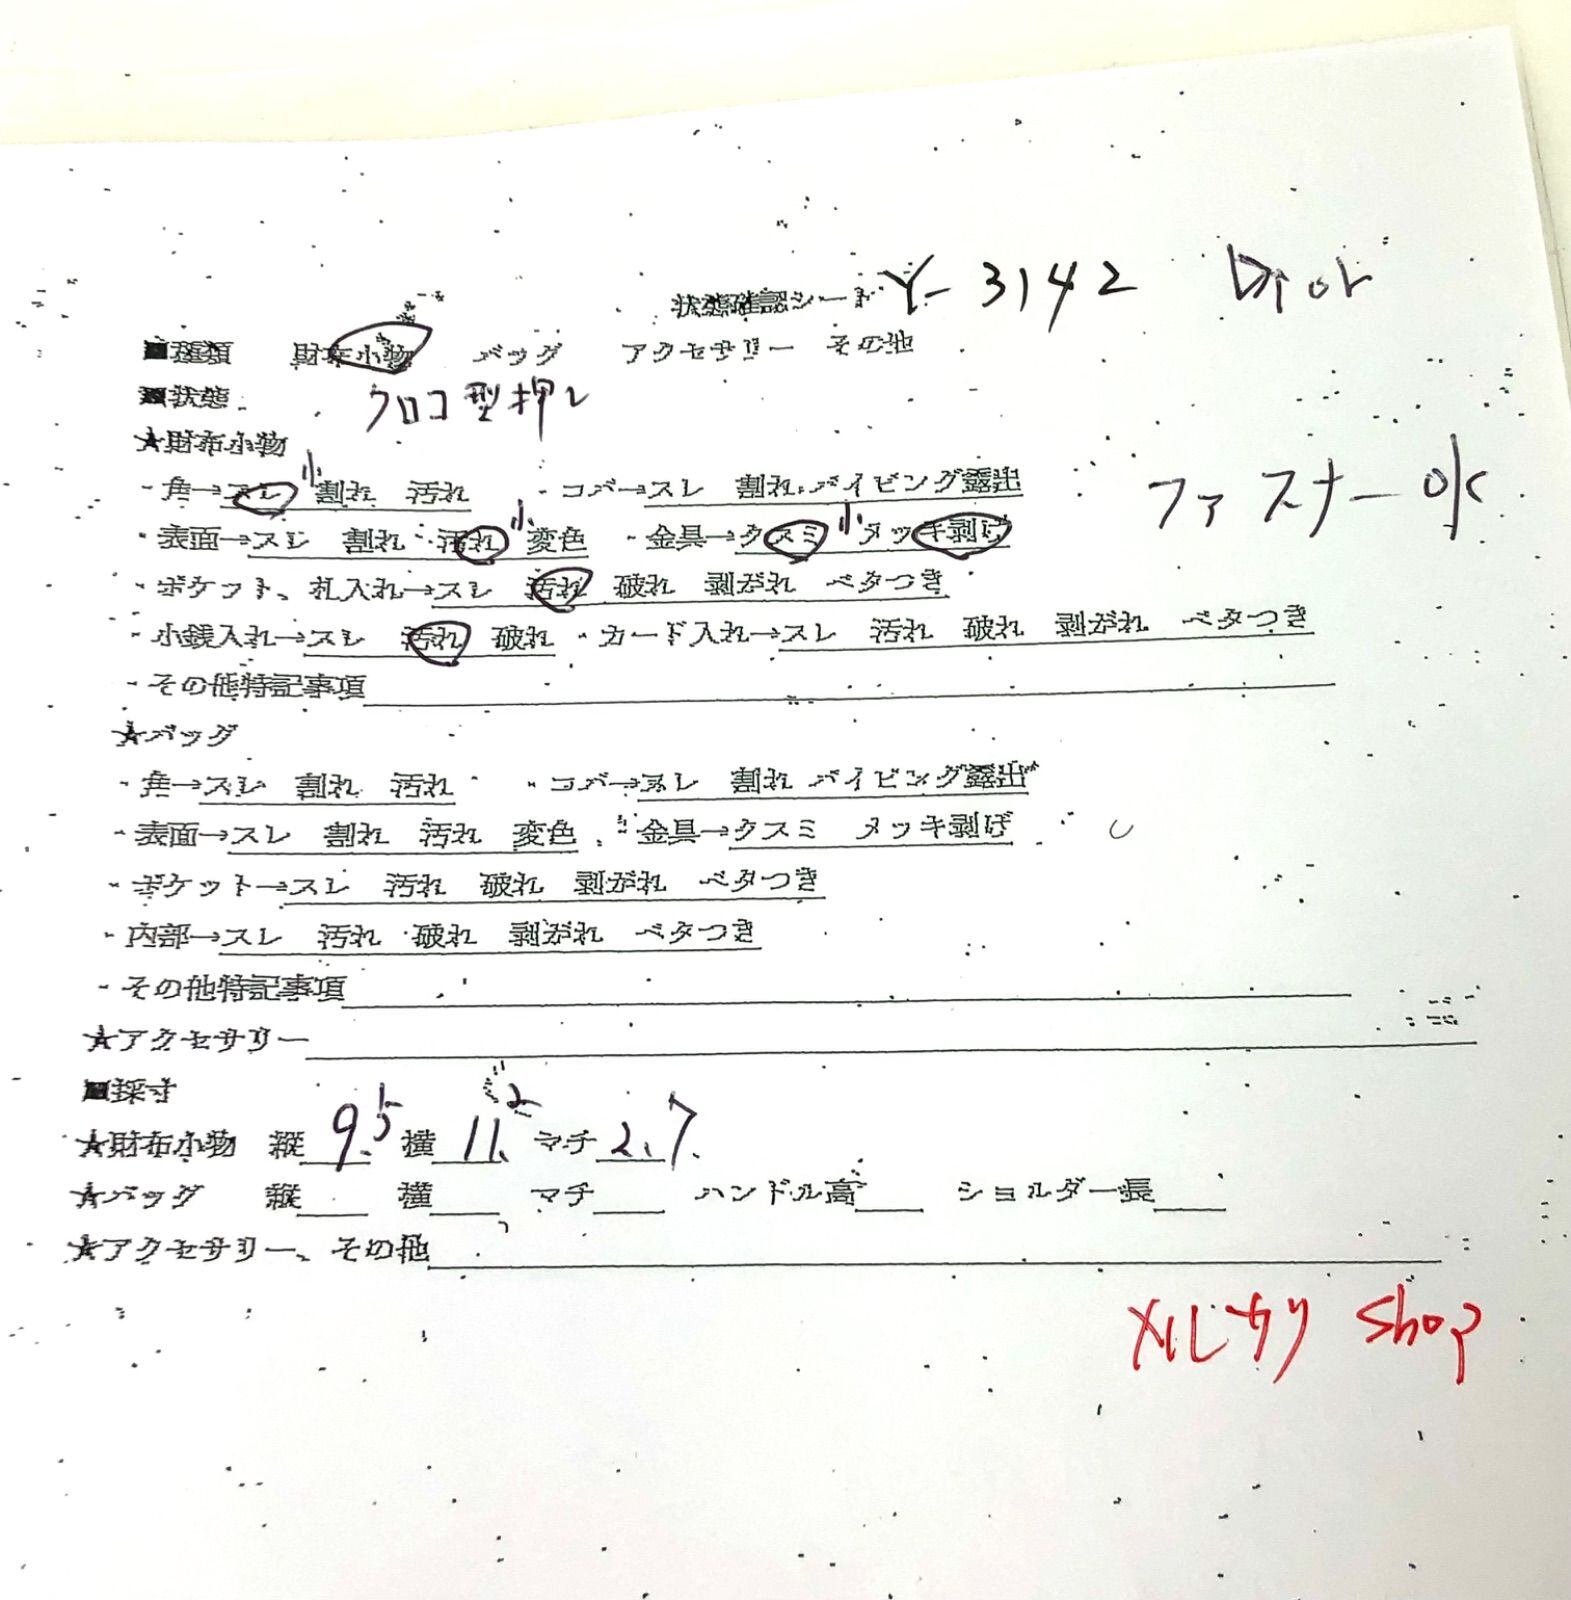 状態確認シート Y-3142 Dior
■種類 財布小物 バッグ アクセサリー その他
■状態 クロコ型押し
★財布小物
・角→スレ 小 割れ 汚れ ・コバ→スレ 割れ パイピング露出
ファスナーOK
・表面→スレ 割れ 汚れ 小 変色 ・金具→クスミ 小 メッキ剥げ
・ポケット、札入れ→スレ 汚れ 破れ 剥がれ ベタつき
・小銭入れ→スレ 汚れ 破れ ・カード入れ→スレ 汚れ 破れ 剥がれ ベタつき
・その他特記事項
★バッグ
・角→スレ 割れ 汚れ ・コバ→スレ 割れ パイピング露出
・表面→スレ 割れ 汚れ 変色 ・金具→クスミ メッキ剥げ
・ポケット→スレ 汚れ 破れ 剥がれ ベタつき
・内部→スレ 汚れ 破れ 剥がれ ベタつき
・その他特記事項
★アクセサリー
■採寸
★財布小物 縦 9.5 横 11.2 マチ 2.7
★バッグ 縦 横 マチ ハンドル高 ショルダー長
★アクセサリー、その他
メルカリ shop